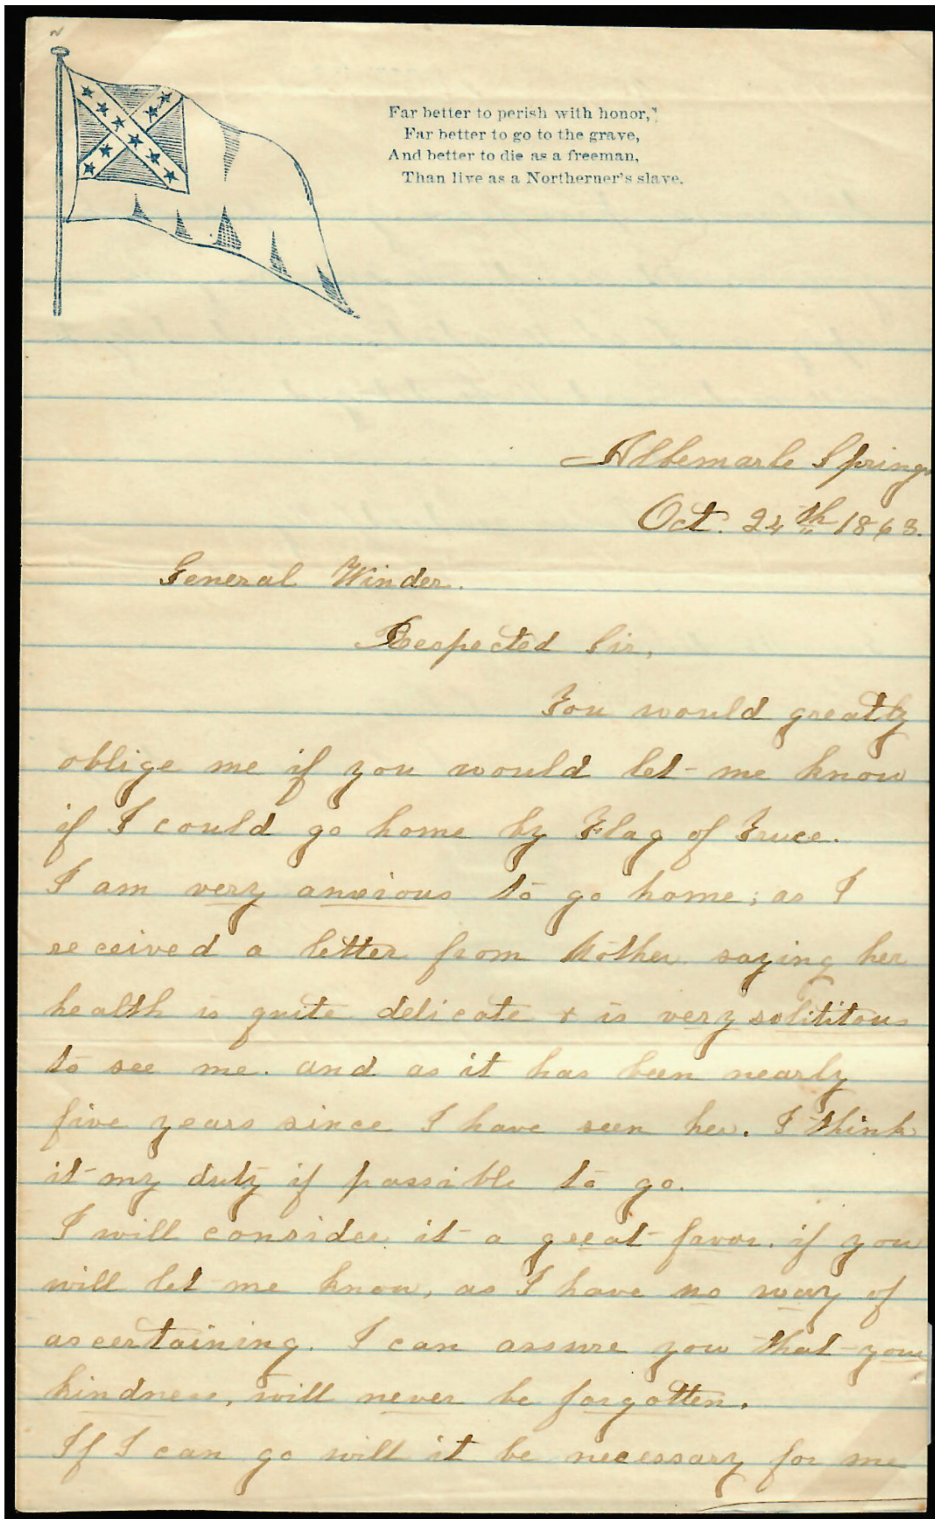 Far better to perish with honor,"
Far better to go to the grave,
And better to die as a freeman,
Than live as a Northerner's slave.
Albemarle Springs
Oct. 24th 1863.
General Winder.
Respected Sir,
You would greatly
oblige me if you would let me know
if I could go home by Flag of Truce.
I am very anxious to go home; as I
received a letter from Mother saying her
health is quite delicate & is very solititous
to see me. and as it has been nearly
five years since I have seen her. I think
it my duty if possible to go.
I will consider it a great favor. if you
will let me know, as I have no way of
ascertaining. I can assure you that your
kindness, will never be forgotten.
If I can go will it be necessary for me